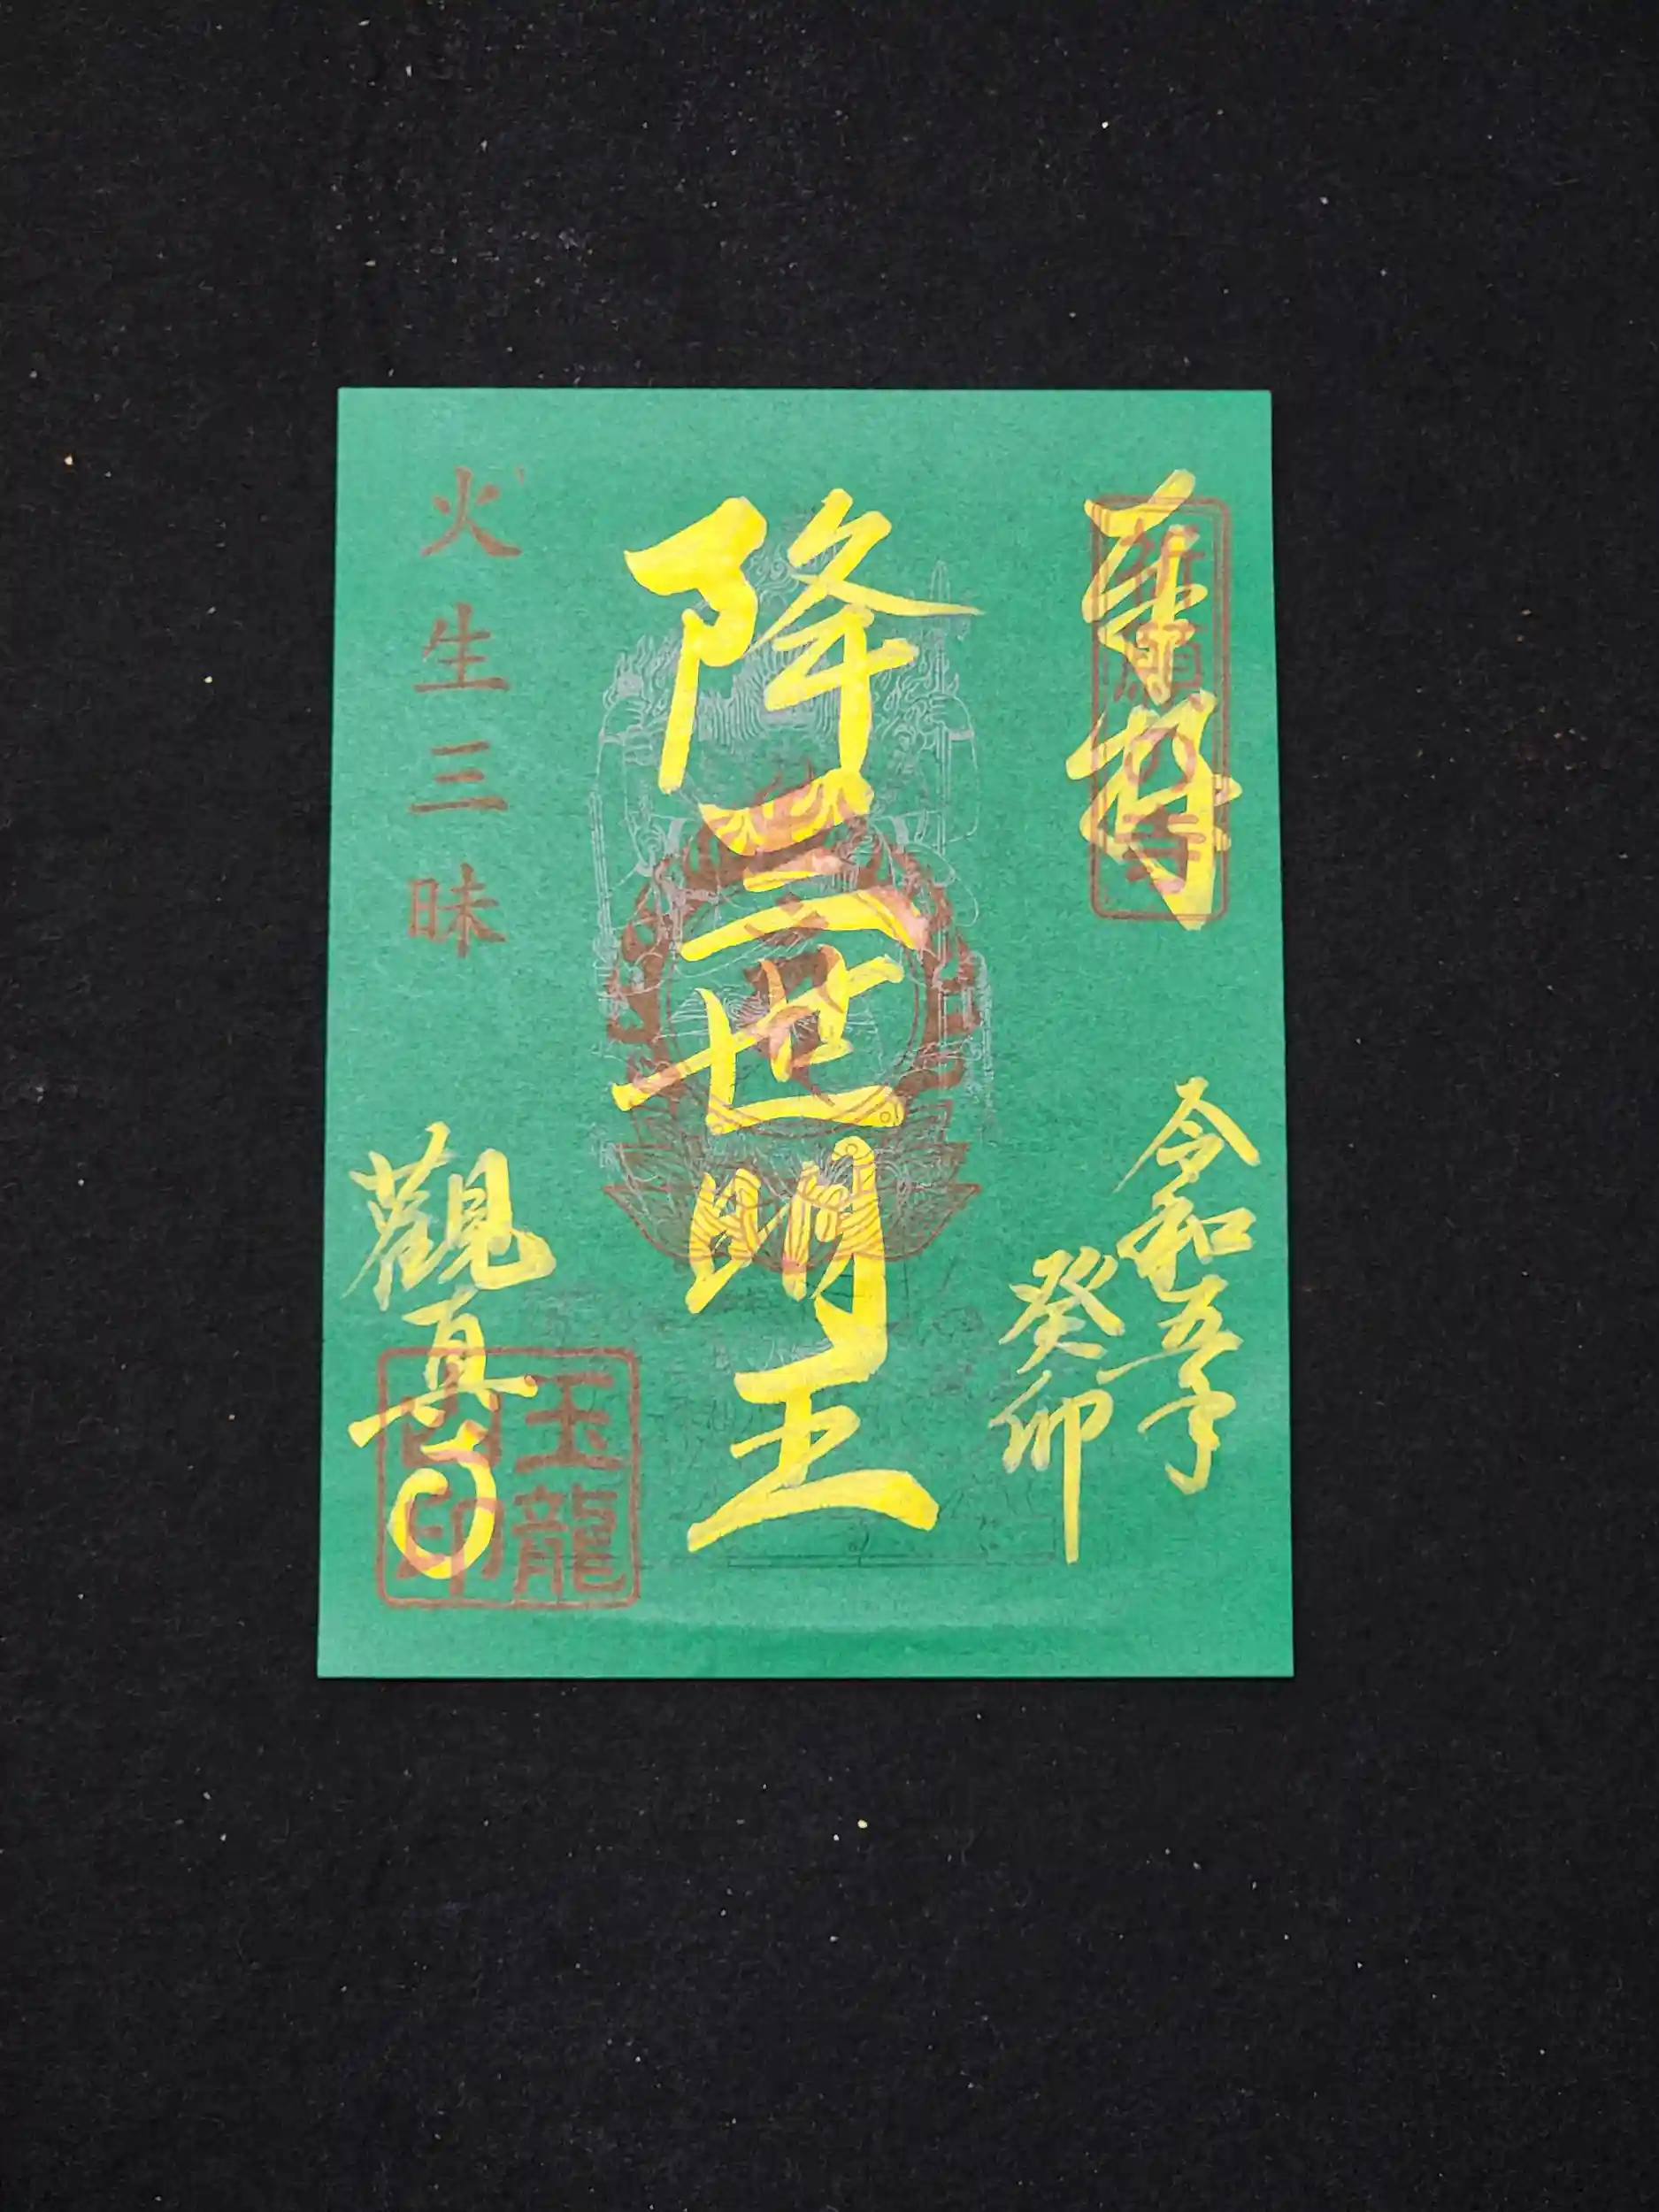 奉拝
令和五年
癸卯
降三世明王
火生三昧
觀真寺
玉龍